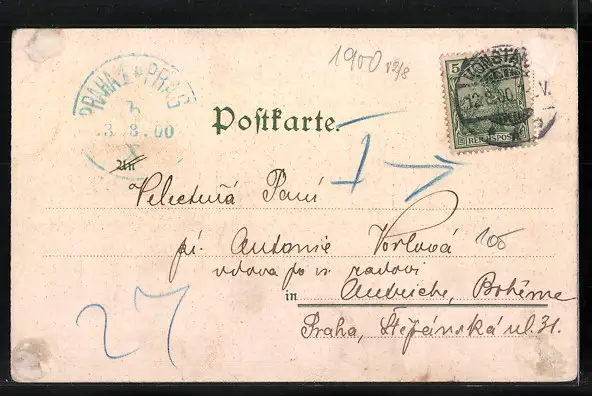 1900 12/8
PRAHA 1 * PRAG
b
13.8.00
5
KONSTAN
12.8.00
V.
REICHSPOST
Postkarte.
An
I →
Velectěná Paní
pí. Antonie Vorlová
105
vdova po c. radovi
in Autriche, Bohême
Praha, Štěpánská ul. 31.
27